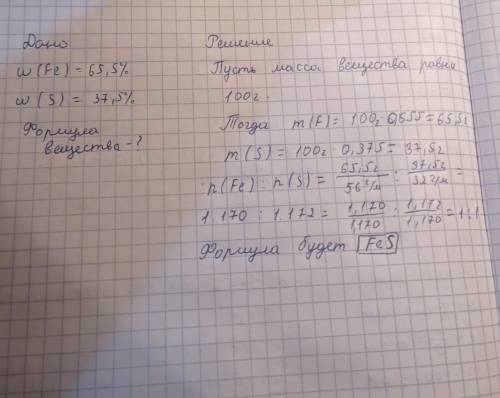 Дано
w (Fe) = 65,5%
w (S) = 37,5%
Формула
вещества - ?
Решение
Пусть масса вещества равна
100г.
Тогда m(F) = 100г · 0,655 = 65,5г
m(S) = 100г · 0,375 = 37,5г
n(Fe) : n(S) = 65,5г/56г/м : 37,5г/32г/м =
1.170 : 1.172 = 1,170/1,170 : 1,172/1,170 = 1:1
Формула будет FeS